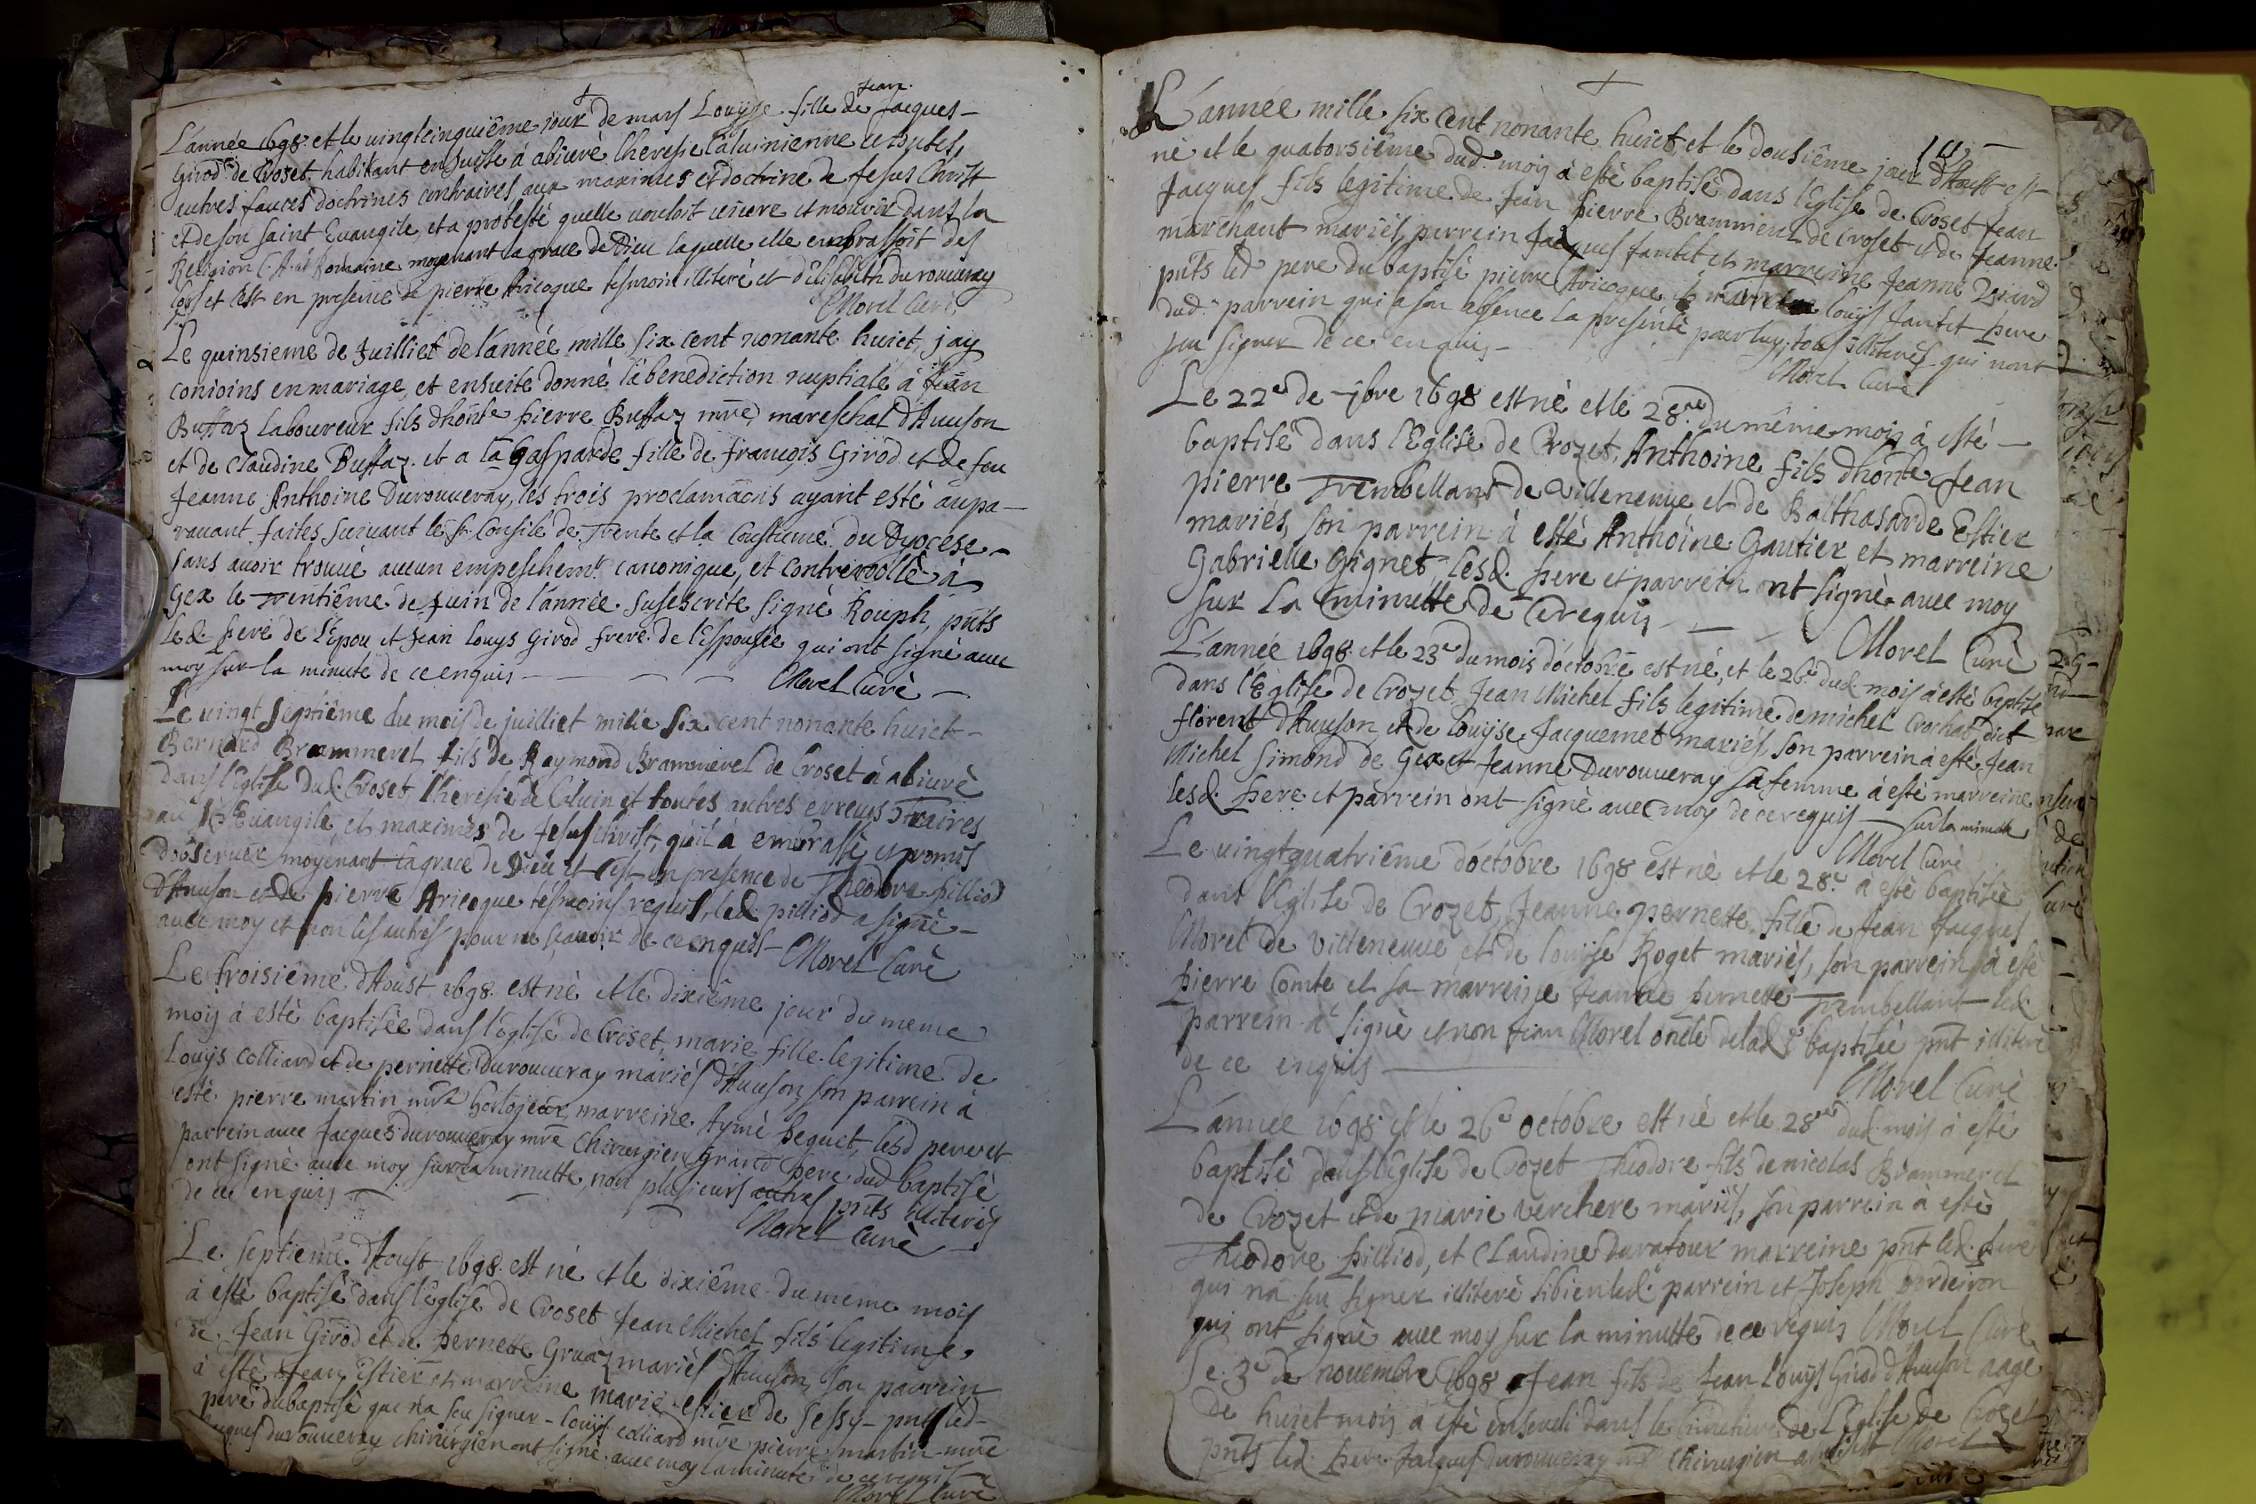 L'année 1698 et le vingtcinquiême jour de mars Louyse fille de Jean Jacques
Girod de Croset habitant en suisse à abiuré lheresie Caluinienne et toutes
autres fauces doctrines contraires aux maximes et doctrine de Jesus Christ
et de son saint Euangile, et a protesté quelle vouloit viure et mourir dans la
Religion C. A. et Romaine moyenant la grace de Dieu laquelle elle embrassoit des
lors et c'est en presence de pierre Aricoque tesmoin illiteré et d'élisabeth duvouueray
Morel Curé
Le quinsieme de Juilliet de l'année mille six cent nonante huict, jay
conioins en mariage, et ensuite donné la benediction nuptiale à Jean
Buffaz laboureur fils dhonte pierre Buffaz mre mareschal d'Auuson
et de Claudine Buffaz et a la Gasparde fille de françois Girod et de feu
Jeanne Anthoine Duvouueray, les trois proclamaons ayant esté aupa-
rauant faites suiuant le st Consile de Trente et la Coustume du Dyocese
sans auoir trouué aucun empeschemt canonique, et Contrerollé à
Gex le Trentiême de Juin de l'année susescrite signé Rouph, pnts
led. pere de l'Epou, et Jean Louys Girod frere de l'Espousée qui ont signé auec
moy sur la minute de ce enquis
Morel Curé
Le vingt septiême du mois de juilliet mille six cent nonante huict
Bernard Brammerel fils de Raymond Brammerel de Croset à abiuré
dans l'Eglise dud. Croset l'heresie de Caluin et toutes autres erreurs Straires
au St Euangile et maximes de Jesus Christ, qu'il à embrassé et promis
dobseruer moyenant la grace de Dieu et c'est en presence de Theodore pilliod
d'Auuson et de pierre Aricoque tesmoins requis, led. pilliod a signé
auec moy et non les autres pour ne scauoir de ce enquis Morel Curé
Le troisiême d'Aoust 1698 est né et le dixiême jour du meme
mois à esté baptisée dans l'eglise de Croset marie fille legitime de
Louys Colliard et de pernette Duvouueray mariés d'Auuson, son parrein à
esté pierre martin mre horlojeur, marreine Aymé beguet, lesd pere et
parrein auec Jacques duvouueray mre Chirurgien grand pere dud baptisé
ont signé auec moy sur la minutte, non plusieurs autres pnts illiterés
de ce enquis
Morel Curé
Le septieme d'Aoust 1698 est né et le dixiême du meme mois
à esté baptisé dans l'eglise de Croset Jean Michel fils legitime
de Jean Girod et de Pernette Gruaz mariés d'Auuson, son parrein
à esté Jean Estier et marreine marie estier de Sessy pnts led
pere du baptisé qui n'a seu signer louys colliard mre pierre martin mre
Jacques duvouueray chirurgien ont signé auec moy la minute de ce requis
Morel Curé
L'année mille six cent nonante huict et le dousiême jour d'Aoust est
né et le quatorsiême dud. mois à esté baptisé dans l'Eglise de Croset Jean
Jacques fils legitime de Jean pierre Brammerel de Croset et de Jeanne
marchant mariés, parrein Jacques fantet et marreine Jeanne
pnts led pere du baptisé pierre Aricoque et louys fantet pere
dud. parrein qui a son absence la presenté pour luy, tous illiterés qui nont
seu signer de ce enquis
Morel Curé
Le 22e de 7bre 1698 est né et le 28me du même mois à esté
baptisé dans l'Eglise de Crozet, Anthoine fils dhonte Jean
pierre Trembellant de Villeneuue et de Balthasarde Estier
mariés, son parrein à esté Anthoine Gautier et marreine
Gabrielle Grignet, lesd. pere et parrein ont signé auec moy
sur la minutte de ce requis
Morel Curé
L'année 1698 et le 23e du mois d'octobre est né, et le 26e dud mois à esté baptisé
dans l'Eglise de Crozet Jean Michel fils legitime de michel Crochat dict
florent d'Auuson et de Louyse Jacquemet mariés, son parrein à esté Jean
Michel Simond de Gex et Jeanne Duvouueray sa femme à esté marreine
lesd. pere et parrein ont signé auec moy de ce requis sur la minutte
Morel Curé
Le vingtquatriême d'octobre 1698 est né et le 28e à esté baptisée
dans l'Eglise de Crozet, Jeanne pernette fille de Jean Jacques
Morel de Villeneuue et de Louyse Roget mariés, son parrein à esté
Pierre Comte et sa marreine Jeanne pernette Trembellant led.
parrein à signé et non Jean Morel oncle delad. baptisée pnt illiteré
de ce enquis
Morel Curé
L'année 1698 et le 26e octobre est né et le 28me dud. mois à esté
baptisé dans l'Eglise de Crozet Theodore fils de nicolas Brammerel
de Crozet et de marie verchere mariés, son parrein à esté
Theodore pilliod, et Claudine Duvafour marreine pnt led. pere
qui n'a seu signer illiteré sibien led. parrein et Joseph
qui ont signé auec moy sur la minutte de ce requis Morel Curé
Le 3e de nouembre 1698 Jean fils de Jean Louys Girod d'Auuson aagé
de huict mois à esté enseueli dans le Cimetiere de l'Eglise de Crozet
pnts led. pere Jacques duvouueray mre Chirurgien Morel
Curé